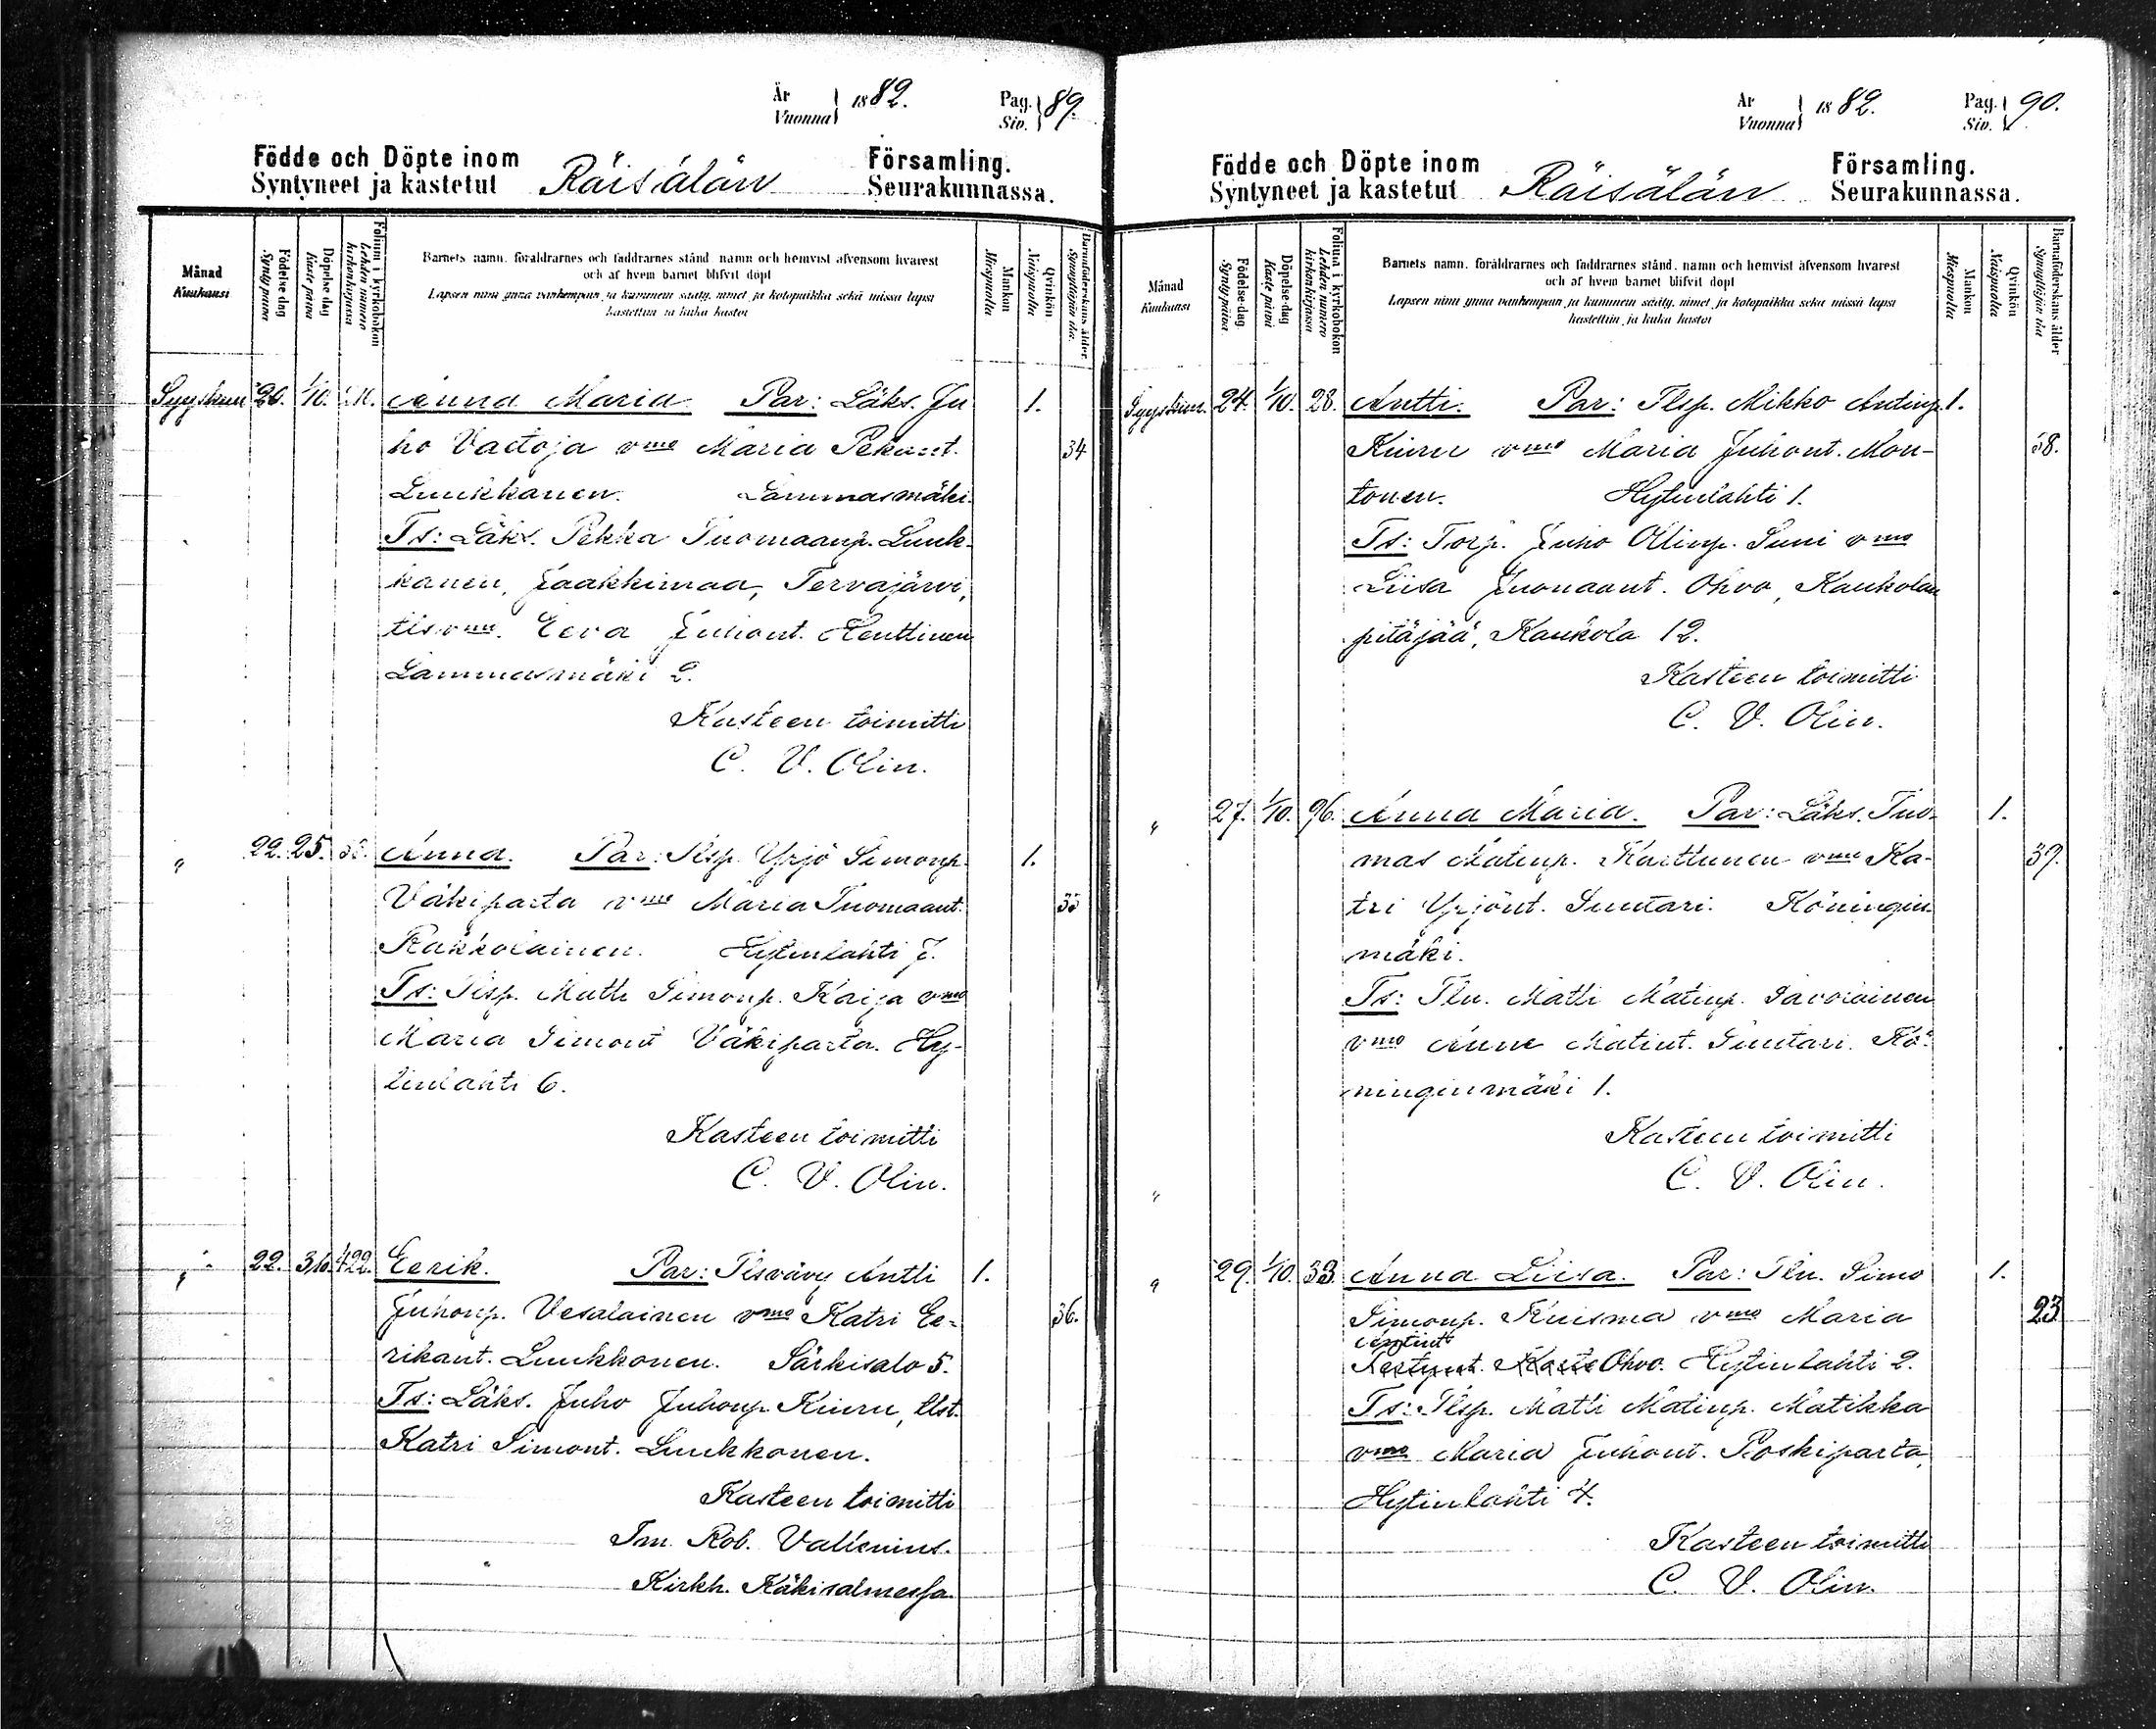 År
Vuonna
1882.
Pag.
Siv.
89.
Födde och Döpte inom
Syntyneet ja kastetut
Räisälän
Församling.
Seurakunnassa.
Månad
Kuukausi
Födelse dag
Synty päivä
Döpelse dag
Kaste päivä
Folium i kyrkoboken
Lehden numero kirkonkirjassa
Barnets namn, föräldrarnes och faddrarnes stånd, namn och hemvist äfvensom hvarest
och af hvem barnet blifvit döpt
Lapsen nimi ynnä vanhempain ja kummein sääty, nimet ja kotopaikka sekä missä lapsi
kastettiin ja kuka kastoi
Mankön
Miespuolia
Qvinkön
Naispuolia
Barnaföderskans ålder
Synnyttäjän ikä
Syyskuu 20. 1/10. Anna Maria. Par: Läks. Ju 1.
ho Vaitoja vmo Maria Pekant. 34
Luukkanen. Lammasmäki.
Ts: Läks. Pekka Tuomaanp. Luuk-
kanen, Jaakkimaa, Tervajärvi,
Eeva Juhont. Henttinen
Lammasmäki 2.
Kasteen toimitti
C. V. Olin.
" 22. 25. Anna. Par: Tlsp. Yrjö Simonp. 1.
Väkiparta vmo Maria Tuomaant. 35
Räkkölainen. Hytinlahti 7.
Ts: Tlsp. Matti Simonp. Kaija vmo
Maria Simont Väkiparta. Hy-
tinlahti 6.
Kasteen toimitti
C. V. Olin.
" 22. 3/10. 422. Eerik. Par: Tlsvävy Antti 1.
Juhonp. Vesalainen vmo Katri Ee- 36.
rikant. Luukkonen. Särkisalo 5.
Ts: Läks. Juho Juhonp. Kiuru, tlst.
Katri Simont. Luukkonen.
Kasteen toimitti
Im. Rob. Vallenius.
Kirkh. Käkisalmessa.
År
Vuonna
1882.
Pag.
Siv.
90.
Födde och Döpte inom
Syntyneet ja kastetut
Räisälän
Församling.
Seurakunnassa.
Månad
Kuukausi
Födelse-dag
Synty päivä
Döpelse-dag
Kaste päivä
Folium i kyrkoboken
Lehden numero kirkonkirjassa
Barnets namn, föräldrarnes och faddrarnes stånd, namn och hemvist äfvensom hvarest
och af hvem barnet blifvit döpt
Lapsen nimi ynnä vanhempain ja kummein sääty, nimet ja kotopaikka sekä missä lapsi
kastettiin ja kuka kastoi
Mankön
Miespuolia
Qvinkön
Naispuolia
Barnaföderskans ålder
Synnyttäjän ikä
Syyskuu. 24. 1/10. 28. Antti. Par: Tlsp. Mikko Antinp. 1.
Kiuru vmo Maria Juhont. Mon- 38.
tonen. Hytinlahti 1.
Ts: Torp. Juho Ollinp. Suni vmo
Liisa Juonaant. Ohvo, Kaukolan
pitäjää, Kaukola 12.
Kasteen toimitti
C. V. Olin.
" 27. 1/10. 96. Anna Maria. Par: Läks. Tuo- 1.
mas Matinp. Karttunen vmo Ka- 39.
tri Yrjönt. Suutari. Köningin-
mäki.
Ts: Tln. Matti Matinp. Savolainen
vmo Anna Matint. Suutari. Kö-
ninginmäki 1.
Kasteen toimitti
C. V. Olin.
"
" 29. 1/10. 33 Anna Liisa. Par: Tln. Simo 1.
Simonp. Kuisma vmo Maria 23
Antint
Ohvo. Hytinlahti 2.
Ts: Tlsp. Matti Matinp. Matikka
vmo Maria Juhont. Poskiparta,
Hytinlahti 4.
Kasteen toimitti
C. V. Olin.